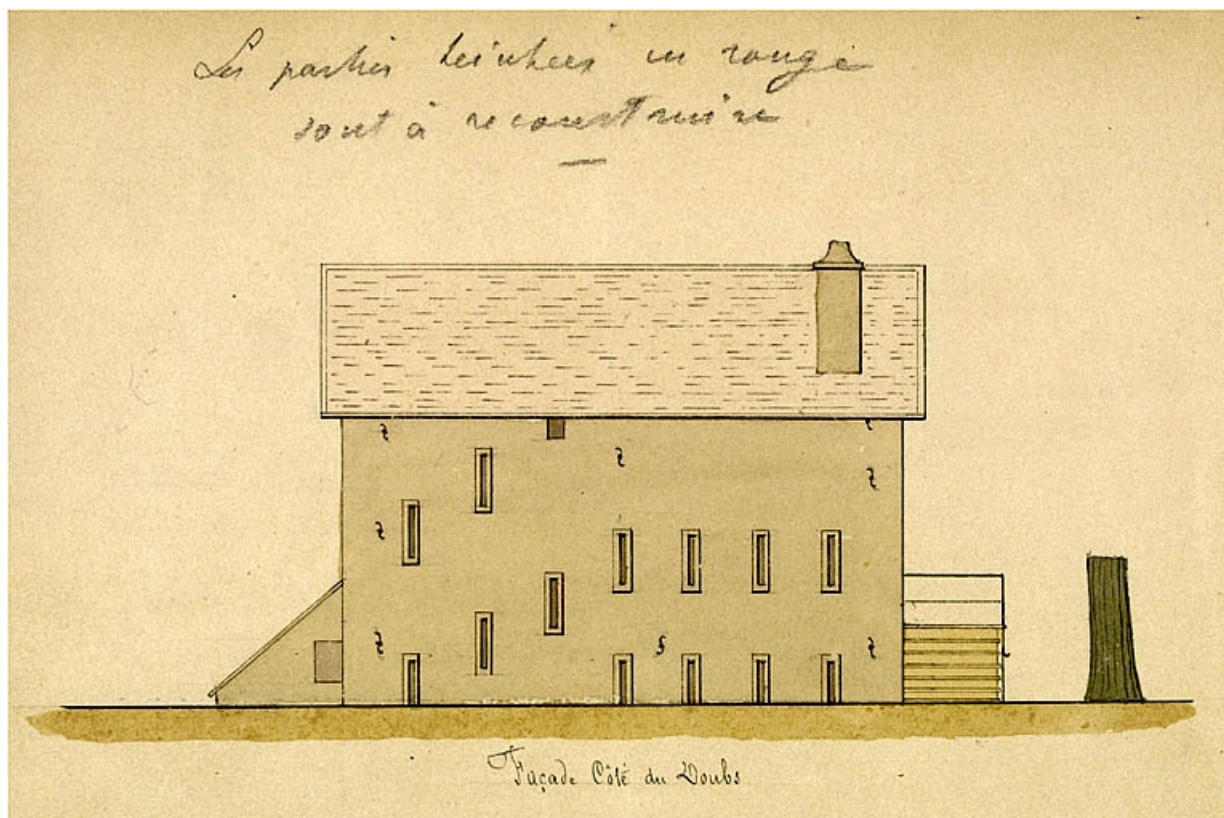 Les parties teintées en rouge
sont à reconstruire
Façade Côté du Doubs